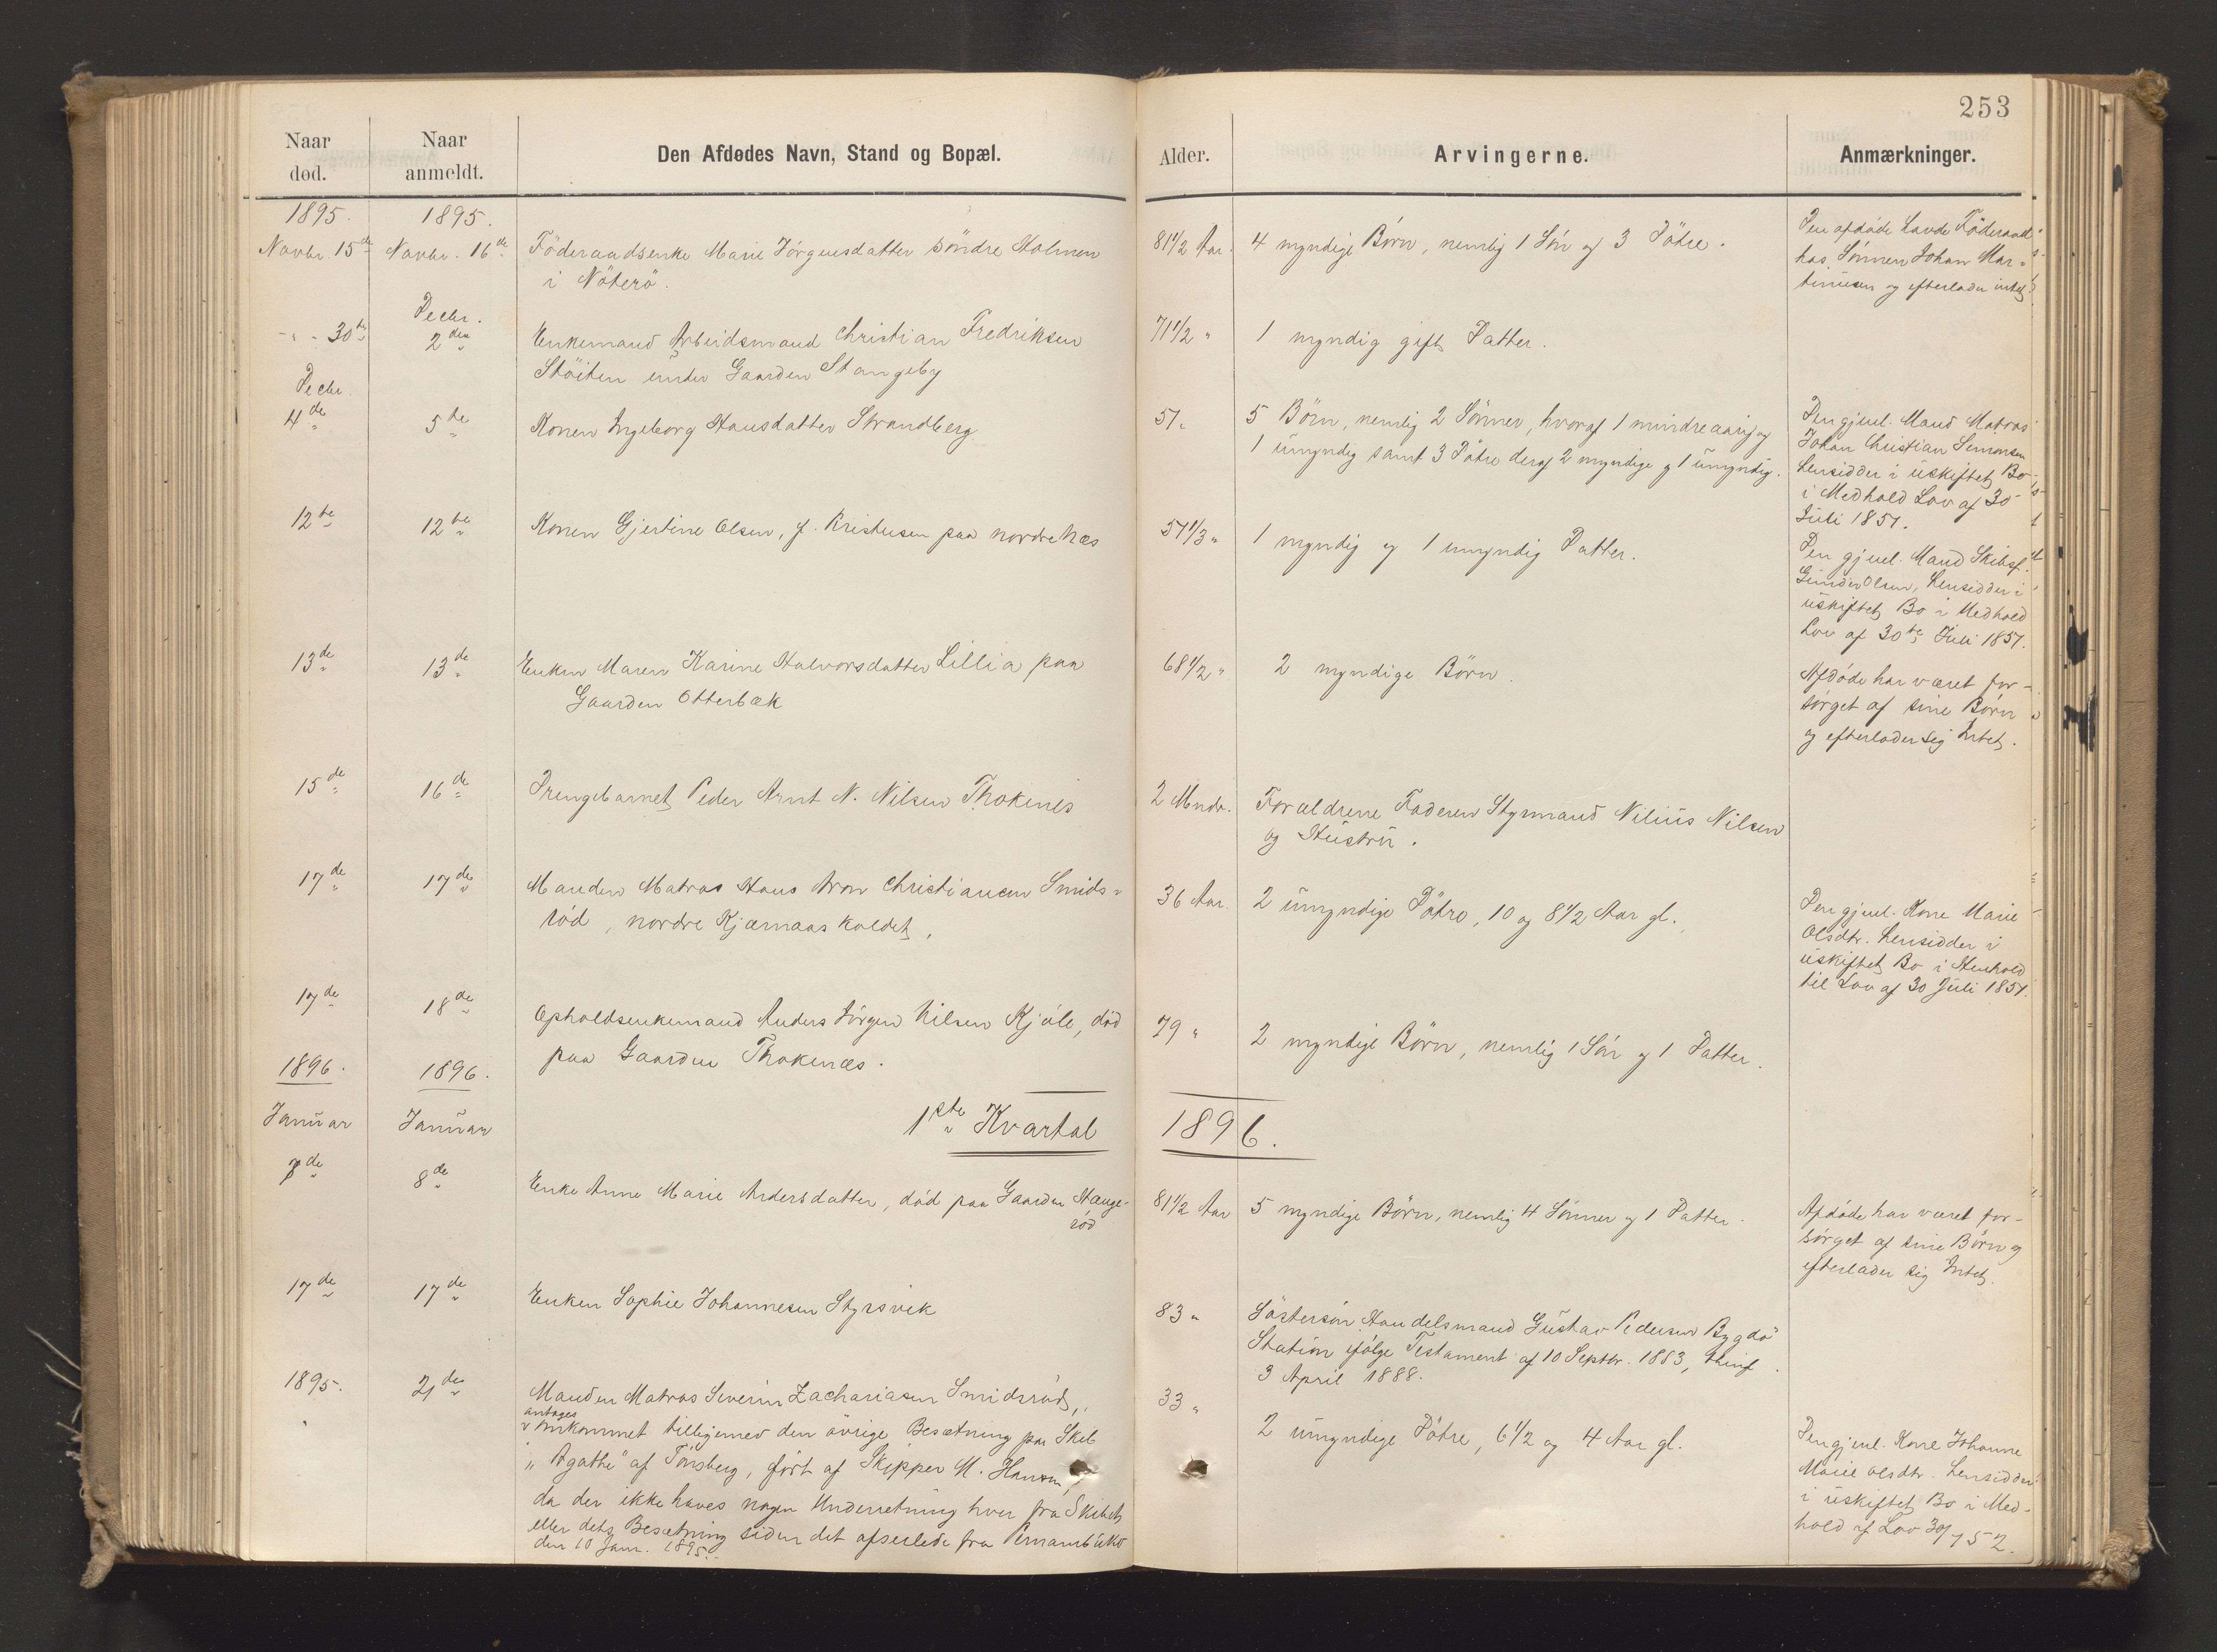 253
Naar død.
Naar anmeldt.
Den Afdødes Navn, Stand og Bopæl.
Alder.
Arvingerne.
Anmærkninger.
1895. 1895.
Novbr. 15de Novbr. 16de
Föderaadsenke Marie Jörgensdatter söndre Holmen
i Nöterö.
81 1/2 Aar.
4 myndige Börn, nemlig 1 Sön og 3 Dötre.
Den afdöde havde Föderaad
hos Sönnen Johan Mar-
tinusen og efterlader intet.
Decbr.
30te 2den
Enkemand Arbeidsmand Christian Fredriksen
Stöiten under Gaarden Stangeby
71 1/2 "
1 myndig gift Datter.
Decbr.
4de 5te
Konen Ingeborg Hansdatter Strandberg
51 "
5 Börn, nemlig 2 Sönner, hvoraf 1 mindreaarig og
1 umyndig samt 3 Dötre deraf 2 myndige og 1 umyndig.
Den gjenl. Mand Matros
Johan Christian Simonsen
hensidder i uskiftet Bo
i Medhold Lov af 30
Juli 1851.
12te 12te
Konen Gjertine Olsen, f. Kristensen paa nordre Næs
51 1/3 "
1 myndig og 1 umyndig Datter.
Den gjenl. Mand Skibsf.
Gunder Olsen, hensidder i
uskiftet Bo i Medhold
Lov af 30te Juli 1851.
13de 13de
Enken Maren Karine Halvorsdatter Lillia paa
Gaarden Otterbæk
68 1/2 "
2 myndige Börn.
Afdöde har været for-
sörget af sine Börn
og efterlader sig Intet.
15de 16de
Drengebarnet Peder Arnt N. Nilsen Thokenes
2 Mndr.
Forældrene Faderen Styrmand Nilius Nilsen
og Hustru.
17de 17de
Manden Matros Hans Aron Christiansen Smids-
röd, nordre Kjærnaas kaldet.
36 Aar.
2 umyndige Dötre, 10 og 8 1/2 Aar gl.
Den gjenl. Kone Marie
Olsdtr. hensidder i
uskiftet Bo i Henhold
til Lov af 30 Juli 1851.
17de 18de
Opholdsenkemand Anders Jörgen Nilsen Kjöle, död
paa Gaarden Thokenæs.
79 "
2 myndige Börn, nemlig 1 Sön og 1 Datter.
1896. 1896.
1ste Kvartal 1896.
Januar Januar
7de 8de
Enke Anne Marie Andersdatter, död paa Gaarden Stange-
röd
81 1/2 Aar
5 myndige Börn, nemlig 4 Sönner og 1 Datter.
Afdöde har været for-
sörget af sine Börn og
efterlader sig Intet.
17de 17de
Enken Sophie Johannesen Styrsvik
83 "
Söstersön Handelsmand Gustav Pedersen Bygdö
Station ifölge Testament af 10 Septbr. 1883,
3 April 1888.
1895. 21de
Manden Matros Severin Zachariasen Smidsröd,
antages
omkommet tilligemed den övrige Besætning paa Skib
"Agathe" af Tönsberg, fört af Skipper M. Hansen,
da der ikke haves nogen Underretning hver fra Skibet
eller dets Besætning siden det afseilede fra Pernambuko
den 10 Janr. 1895.
33 "
2 umyndige Dötre, 6 1/2 og 4 Aar gl.
Den gjenl. Kone Johanne
Marie Olsdtr. hensidder
i uskiftet Bo i Med-
hold af Lov 30/7 52.